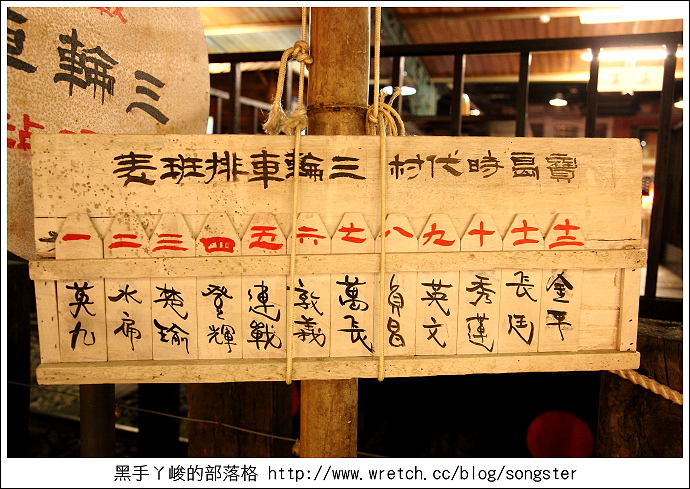 三輪車
寶島時代村 三輪車排班表
一 二 三 四 五 六 七 八 九 十 十一 十二
英九
水扁
楚瑜
登輝
連戰
敦義
萬長
貞昌
英文
秀蓮
長廷
金平
黑手丫峻的部落格 http://www.wretch.cc/blog/songster